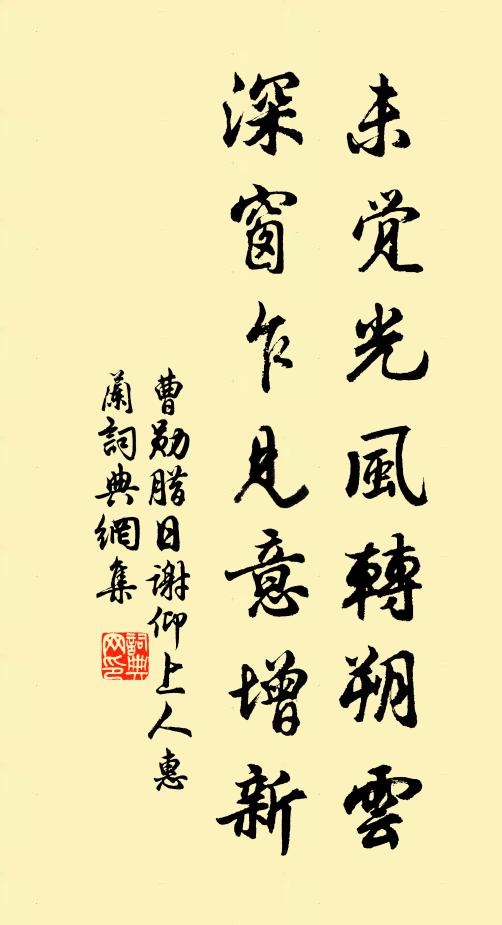 未觉光風轉朔雲
深窗乍見意增新
曹勋腊日谢仰上人惠
蘭詞典網集
詞典
网印